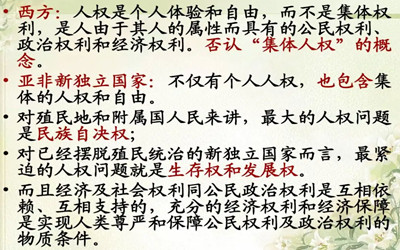 • 西方：人权是个人体验和自由，而不是集体权
利，是人由于其人的属性而具有的公民权利、
政治权利和经济权利。否认“集体人权”的概
念。
• 亚非新独立国家：不仅有个人人权，也包含集
体的人权和自由。
• 对殖民地和附属国人民来讲，最大的人权问题
是民族自决权；
• 对已经摆脱殖民统治的新独立国家而言，最紧
迫的人权问题就是生存权和发展权。
• 而且经济及社会权利同公民政治权利是互相依
赖、互相支持的，充分的经济权利和经济保障
是实现人类尊严和保障公民权利及政治权利的
物质条件。